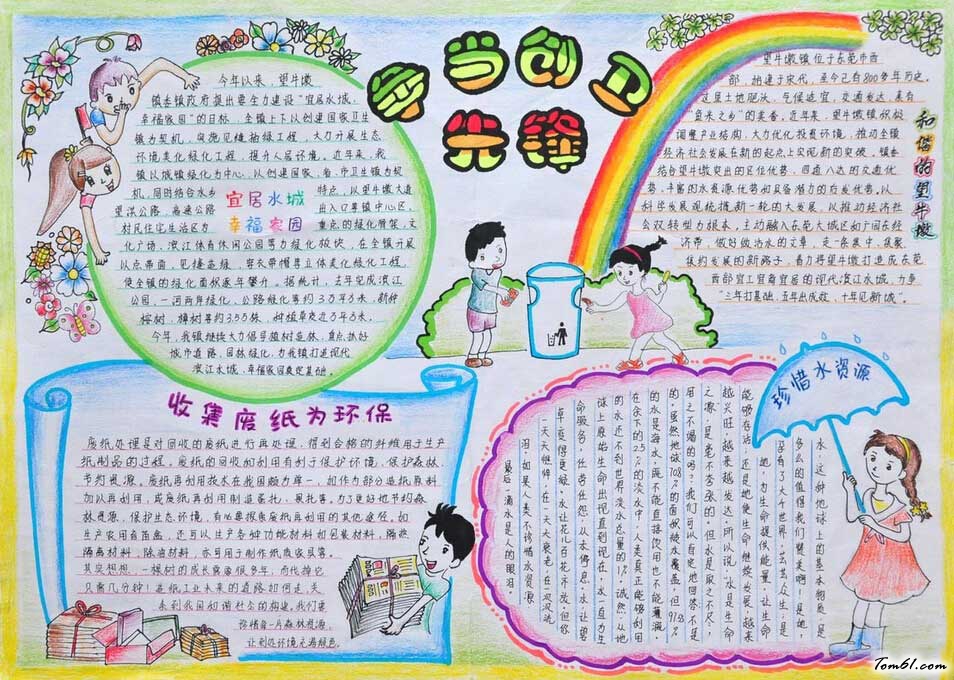 争当创卫
先锋
今年以来，望牛墩
镇委镇政府提出要全力建设“宜居水城，
幸福家园”的目标，全镇上下以创建国家卫生
镇为契机，实施见缝插绿工程，大力开展生态
环境美化绿化工程，提升人居环境。近年来，我
镇以城镇绿化为中心，以创建国家、省、市卫生镇为契
机，同时结合水乡
特点，以望牛墩大道
望洪公路，高速公路
出入口等镇中心区，
村民住宅生活区为
重点的绿化骨架，文
宜居水城
幸福家园
化广场，滨江体育休闲公园等为绿化板块，在全镇开展
以点带面，见缝盖绿，穿衣带帽等立体美化绿化工程，
使全镇的绿化面积逐年攀升。据统计，去年完成滨江
公园，一河两岸绿化，公路绿化等约3万平方米，新种
榕树，樟树等约355株，树植草皮近3万平方米。
今年，我镇继续大力倡导植树造林，重点抓好
城市道路，园林绿化，为我镇打造现代
滨江水城，幸福家园奠定基础。
和谐的望牛墩
望牛墩镇位于东莞市西
部，始建于宋代，至今已有800多年历史。
这里土地肥沃，气候适宜，交通发达，素有
“鱼米之乡”的美誉。近年来，望牛墩镇积极
调整产业结构，大力优化投资环境，推动全镇
经济社会发展在新的起点上实现新的突破。镇委
结合望牛墩突出的区位优势，四通八达的交通优
势，丰富的水资源优势和具备潜力的后发优势，以
科学发展观统揽新一轮的大发展，以推动经济社
会双转型为根本，主动融入东莞大城区和广园东经
济带，做好做活水的文章，走一条集中，集聚，
集约发展的新路子，着力将望牛墩打造成东莞
西部宜工宜商宜居的现代滨江水城，力争
“三年打基础，五年出成效，十年见新城”。
收集废纸为环保
废纸处理是对回收的废纸进行再处理，得到合格的纤维用于生产
纸制品的过程。废纸的回收和利用有利于保护环境，保护森林，
节约资源。废纸再利用技术在我国颇为单一，如作为部分造纸原料
加以再利用，或废纸再利用制造蛋托、果托等。为了更好地节约森
林资源，保护生态环境，有必要探索废纸再利用的其他途径。如
生产农用育苗盒，还可以生产各种功能材料如包装材料，隔热
隔离材料，除油材料，亦可用于制作纸质家具等。
其实想想，一棵树的成长需要很多年，而伐掉它
只需几分钟！造纸工业未来的道路如何走，关
系到我国和谐社会的构建，我们要
珍惜每一片森林资源，
让到处环境充满绿色。
珍惜水资源
水，这种地球上的基本物质，是
多么的值得我们赞美啊！是地，
孕育了大千世界，芸芸众生；是
地，为生命提供能量，让生命
能够存活；还是地使生命继续发展，越来
越兴旺，越来越发达。所以说：水是生命
之源，是毫不夸张的。但水是取之不尽，
用之不竭的吗？我们可以肯定地回答：不是
的。虽然地球70.8%的面积被水覆盖，但97.5%
的水是海水，既不能直接饮用也不能灌溉。
在余下的2.5%的淡水中，人类真正能够利用
的水还不到世界淡水总量的1%。诚然，从地
球上原始生命出现直到现在，水自为生
命服务，任劳任怨，从未停息。水，让碧
草变得更绿。水，让花儿百花齐放。但你
一天天憔悴，在一天天衰老，在哭泣流
泪。如果人类不珍惜水资源，
最后一滴水是人的眼泪。
Tom61.com